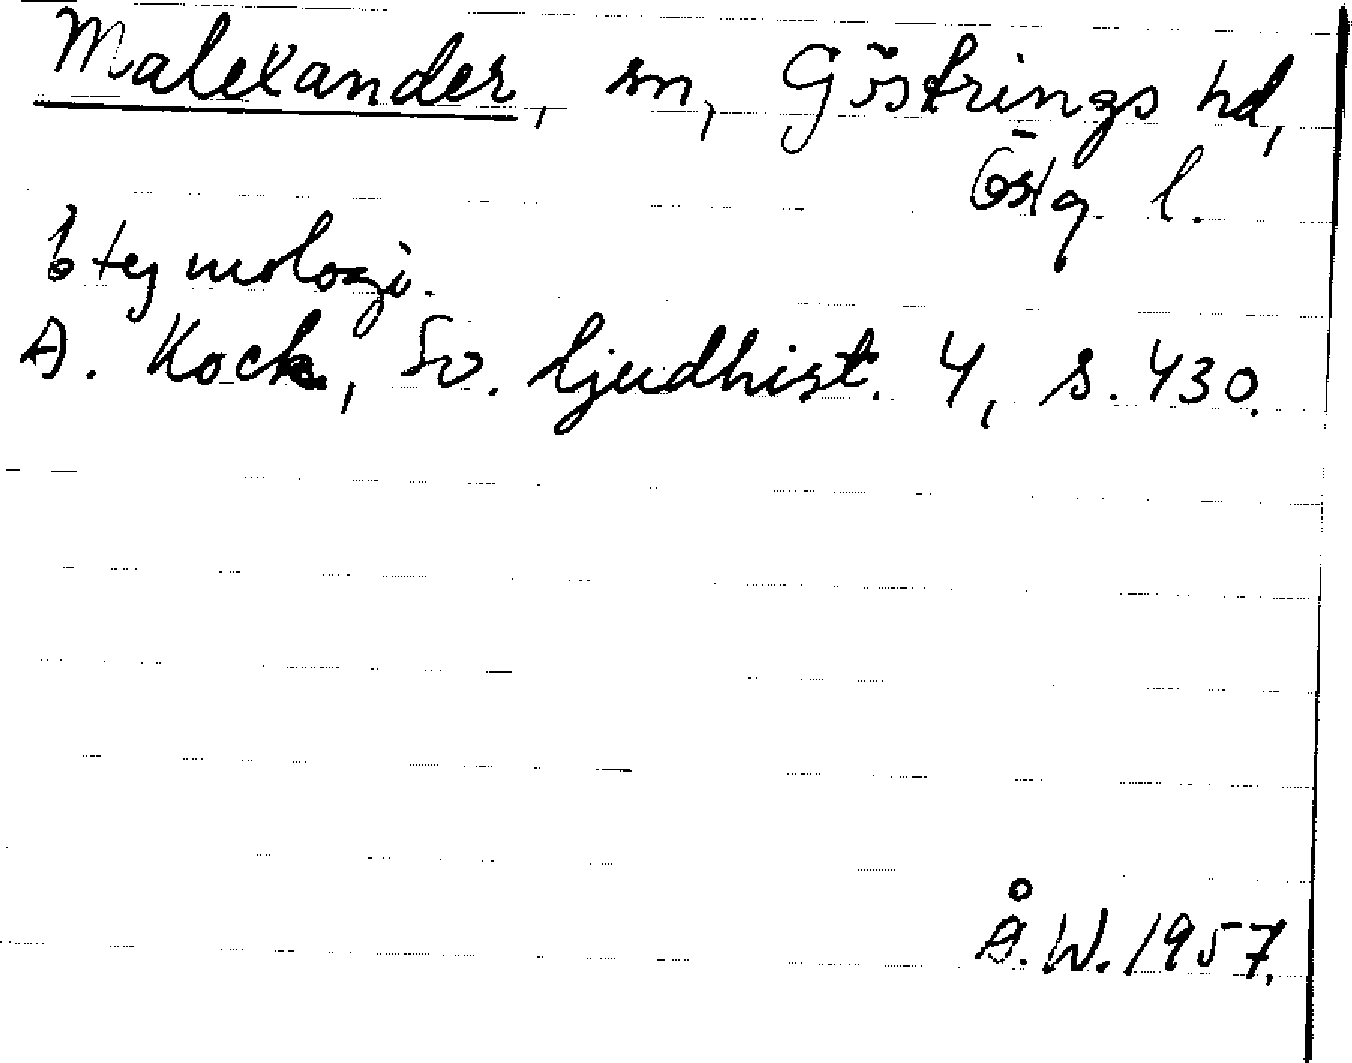 Malexander, sn, Göstrings hd,
Östg. l.
Etymologi.
A. Kock, Sv. ljudhist. 4, s. 430.
Å.W. 1957.